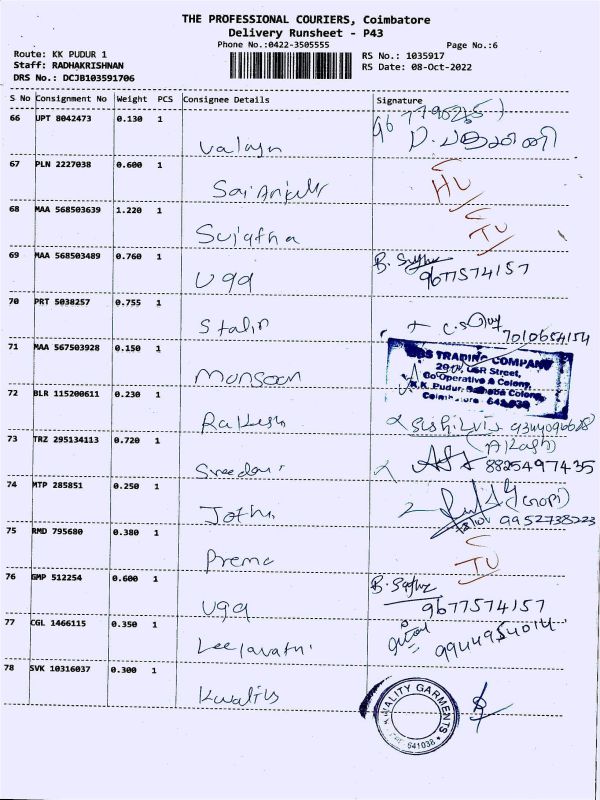 THE PROFESSIONAL COURIERS, Coimbatore
Delivery Runsheet - P43
Phone No.:0422-3505555
Page No.:6
Route: KK PUDUR 1
Staff: RADHAKRISHNAN
DRS No.: DCJB103591706
RS No.: 1035917
RS Date: 08-Oct-2022
S No Consignment No Weight PCS Consignee Details Signature
66 UPT 8042473 0.130 1
67 PLN 2227038 0.600 1
HU
68 MAA 568503639 1.220 1
Sujatha
TU
69 MAA 568503489 0.760 1
Uga
9677574157
70 PRT 5038257 0.755 1
Stalin
7010654154
71 MAA 567503928 0.150 1
Monsoon
TRADING COMPANY
GSR Street,
Co-Operative A Colony,
K.K. Pudur, Saibaba Colony,
Coimbatore - 641 038
72 BLR 115200611 0.230 1
Rakesh
73 TRZ 295134113 0.720 1
(Akash)
8825497435
74 MTP 285851 0.250 1
Jothi
(Gopi)
9952738223
75 RMD 795680 0.380 1
Prema
TU
76 GMP 512254 0.600 1
Uga
9677574157
77 CGL 1466115 0.350 1
Leelavathi
9944954014
78 SVK 10316037 0.300 1
KWALITY GARMENTS
641038